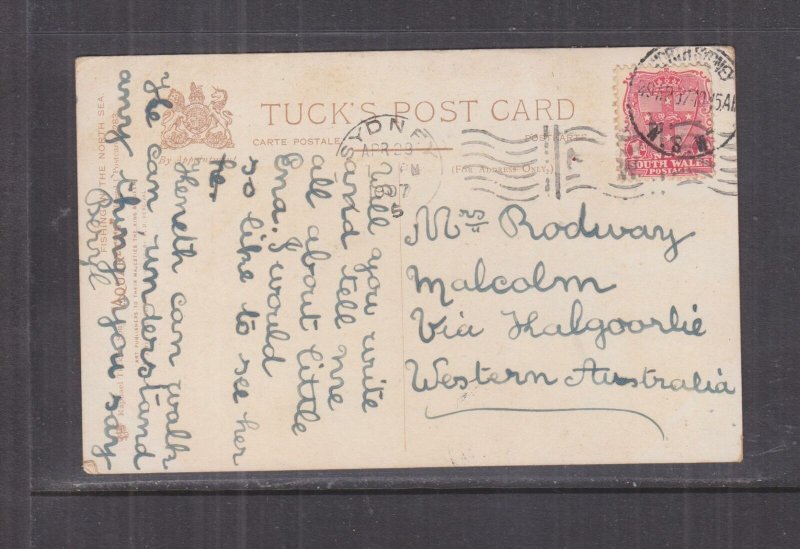 TUCK'S POST CARD
CARTE POSTALE
POSTKARTE
(FOR ADDRESS ONLY)
By Appointment
FISHING IN THE NORTH SEA
SYDNEY
APR 23
PM
N.S.W.
1D
SOUTH WALES
POSTAGE
Mrs Rodway
Malcolm
Via Kalgoorlie
Western Australia
Will you write
and tell me
all about little
Ena. I would
so like to see her
he.
Keneth can walk
& he can understand
any thing you say